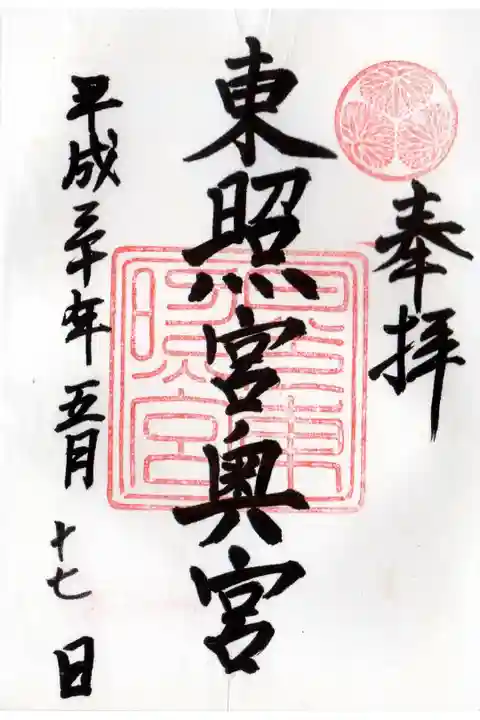 奉拝
東照宮奥宮
平成三十年五月十七日